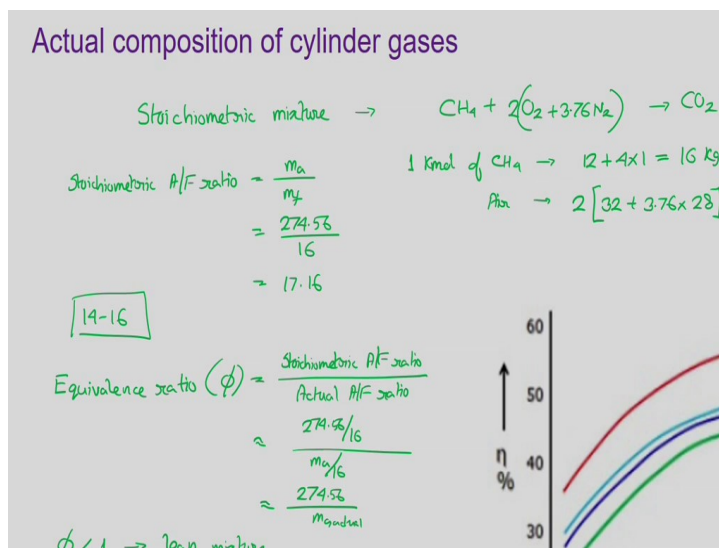 Actual composition of cylinder gases
Stoichiometric mixture → CH4 + 2(O2 + 3.76 N2) → CO2
1 Kmol of CH4 → 12 + 4×1 = 16 kg
Air → 2 [32 + 3.76 × 28]
Stoichiometric A/F ratio = ma/mf
= 274.56/16
= 17.16
14-16
Equivalence ratio (φ) = Stoichiometric A/F ratio/Actual A/F ratio
= 274.56/16/ma/16
= 274.56/mactual
φ < 1 → lean mixture
60
50
η
%
40
30